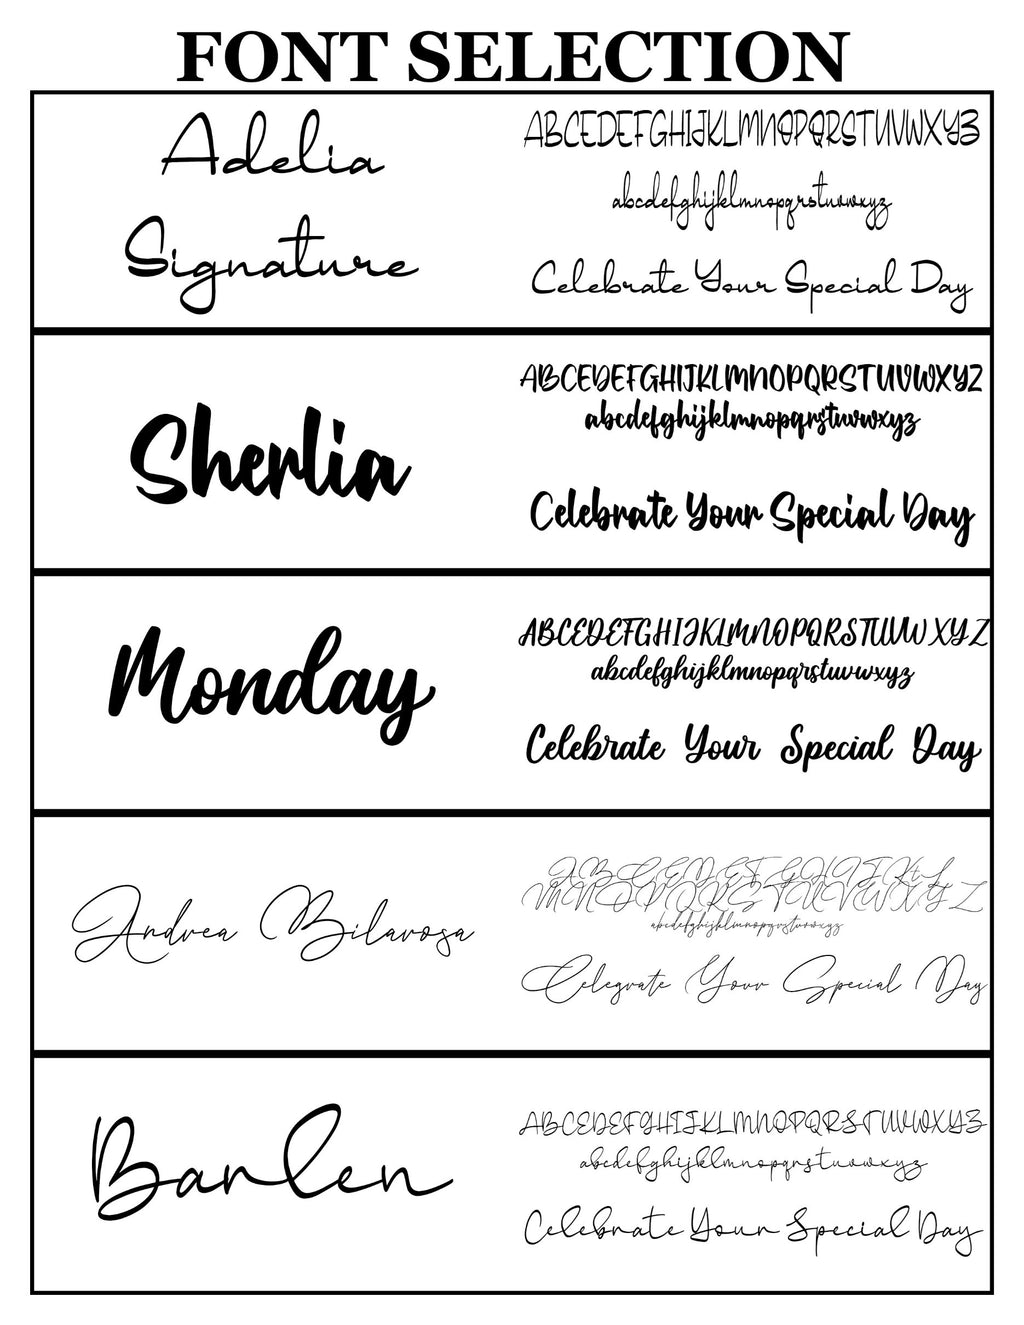 FONT SELECTION
Adelia
Signature
ABCEDEFGHIJKLMNOPQRSTUVWXYZ
abcdefghijklmnopqrstuvwxyz
Celebrate Your Special Day
Sherlia
ABCEDEFGHIJKLMNOPQRSTUVWXYZ
abcdefghijklmnopqrstuvwxyz
Celebrate Your Special Day
Monday
ABCEDEFGHIJKLMNOPQRSTUVWXYZ
abcdefghijklmnopqrstuvwxyz
Celebrate Your Special Day
Andrea Bilarosa
ABCEDEFGHIJKL
MNOPQRSTUVWXYZ
abcdefghijklmnopqrstuvwxyz
Celegrate Your Special Day
Barlen
ABCEDEFGHIJKLMNOPQRSTUVWXYZ
abcdefghijklmnopqrstuvwxyz
Celebrate Your Special Day